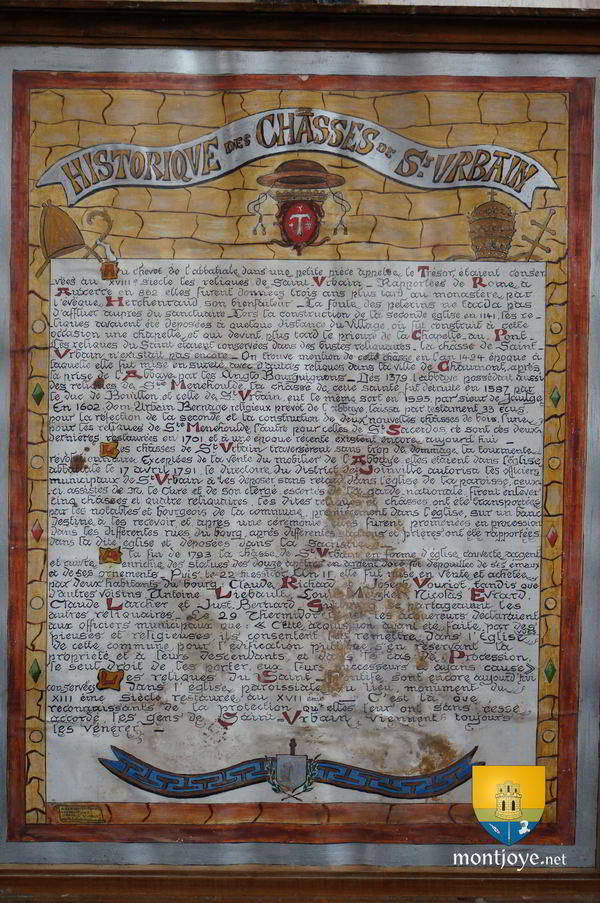 HISTORIQUE DES CHASSES DE St URBAIN
Au chevet de l'abbatiale, dans une petite pièce appelée, le Trésor, étaient conser
vées au XVIIIe siècle les reliques de Saint Urbain _ Rapportées de Rome, à
Auxerre en 862 elles furent données trois ans plus tard au monastère, par
l'évêque Herchenraüs, son bienfaiteur _ La foule des pèlerins ne tarda pas
d'affluer auprès du sanctuaire _ Lors la construction de la seconde église en 1141, les re-
liques avaient été déposées à quelque distance du Village, où fut construit à cette
occasion une chapelle, et qui devint plus tard le prieuré de la Chapelle, au Pont _
Les reliques du Saint étaient conservées dans des bustes reliquaires _ la chasse de Saint-
Urbain n'existait pas encore _ On trouve mention de cette chasse en l'an 1424 époque à
laquelle elle fut mise en sureté avec d'autres reliques dans la ville de Chaumont, après
la prise de l'Abbaye par les Anglo Bourguignons _ Dès 1379 l'abbaye possédait aussi
des reliques de Ste Menehoulde, la chasse de cette Sainte fut détruite en 1587 par
le duc de Bouillon et celle de St Urbain eut le même sort en 1595 par sieur de Jaulge
En 1602 dom Urbain Beritage religieux prévôt de l'abbaye, laissa par testament 33 écus
pour la réfection de la seconde et la construction de deux nouvelles chasses de bois, l'une
pour les reliques de Ste Menehoulde l'autre pour celles de St Sacerdos, ce sont ces deux
dernières restaurées en 1701 et à une époque récente existent encore aujourd'hui _
Les chasses de St Urbain traversèrent sans trop de dommage, la tourmente
révolutionnaire. Exceptées de la vente du mobilier de l'Abbaye, elles étaient dans l'église
abbatiale le 17 avril 1791, le directoire du district de Joinville autorisa les officiers
municipaux de St Urbain à les déposer sans retard dans l'église de la paroisse, ceux
ci assistés de M. le Curé et de son clergé escortés de la garde nationale firent enlever
cinq chasses et quatre reliquaires. les dites reliques et chasses ont été transportées
par les notables et bourgeois de la commune, primitivement dans l'église, sur un banc
destiné, à les recevoir et après une cérémonie furent promenées en procession
dans les différentes rues du bourg, après différentes prières ont été rapportées
dans la dite église et déposées dans la sacristie
A la fin de 1793 la chasse de St Urbain en forme d'église, couverte d'argent
et cuivre, enrichie des statues des douze apôtres en argent doré fut dépouillée de ses émaux
et de ses ornements. Puis le 22 messidor An II, elle fut mise en vente et achetée,
par deux habitants du bourg Claude Richard et Joseph Variot, tandis que
d'autres voisins, Antoine Liébault, Nicolas Evrard,
Claude Larcher et Just, Bernard se partageaient les
autres reliquaires _ Le 29 Thermidor les acquéreurs déclaraient
aux officiers municipaux que « Cette acquisition ayant été faite par des vues
pieuses et religieuses ils consentent à remettre dans l'Eglise
de cette commune pour l'édification publique en réservant la
propriété et à leurs descendants et dans le cas de Procession,
le seul droit de les porter eux et leurs successeurs et ayans cause »
Les reliques du Saint Pontife sont encore aujourd'hui
conservées dans l'église, paroissiale, lieu, monument du
XIIIème Siècle restaurée au XVIIème _ C'est là que
reconnaissants de la protection qu'elles leur ont sans cesse
accordé, les gens de Saint Urbain viennent toujours
les vénérer _
2
montjoye.net